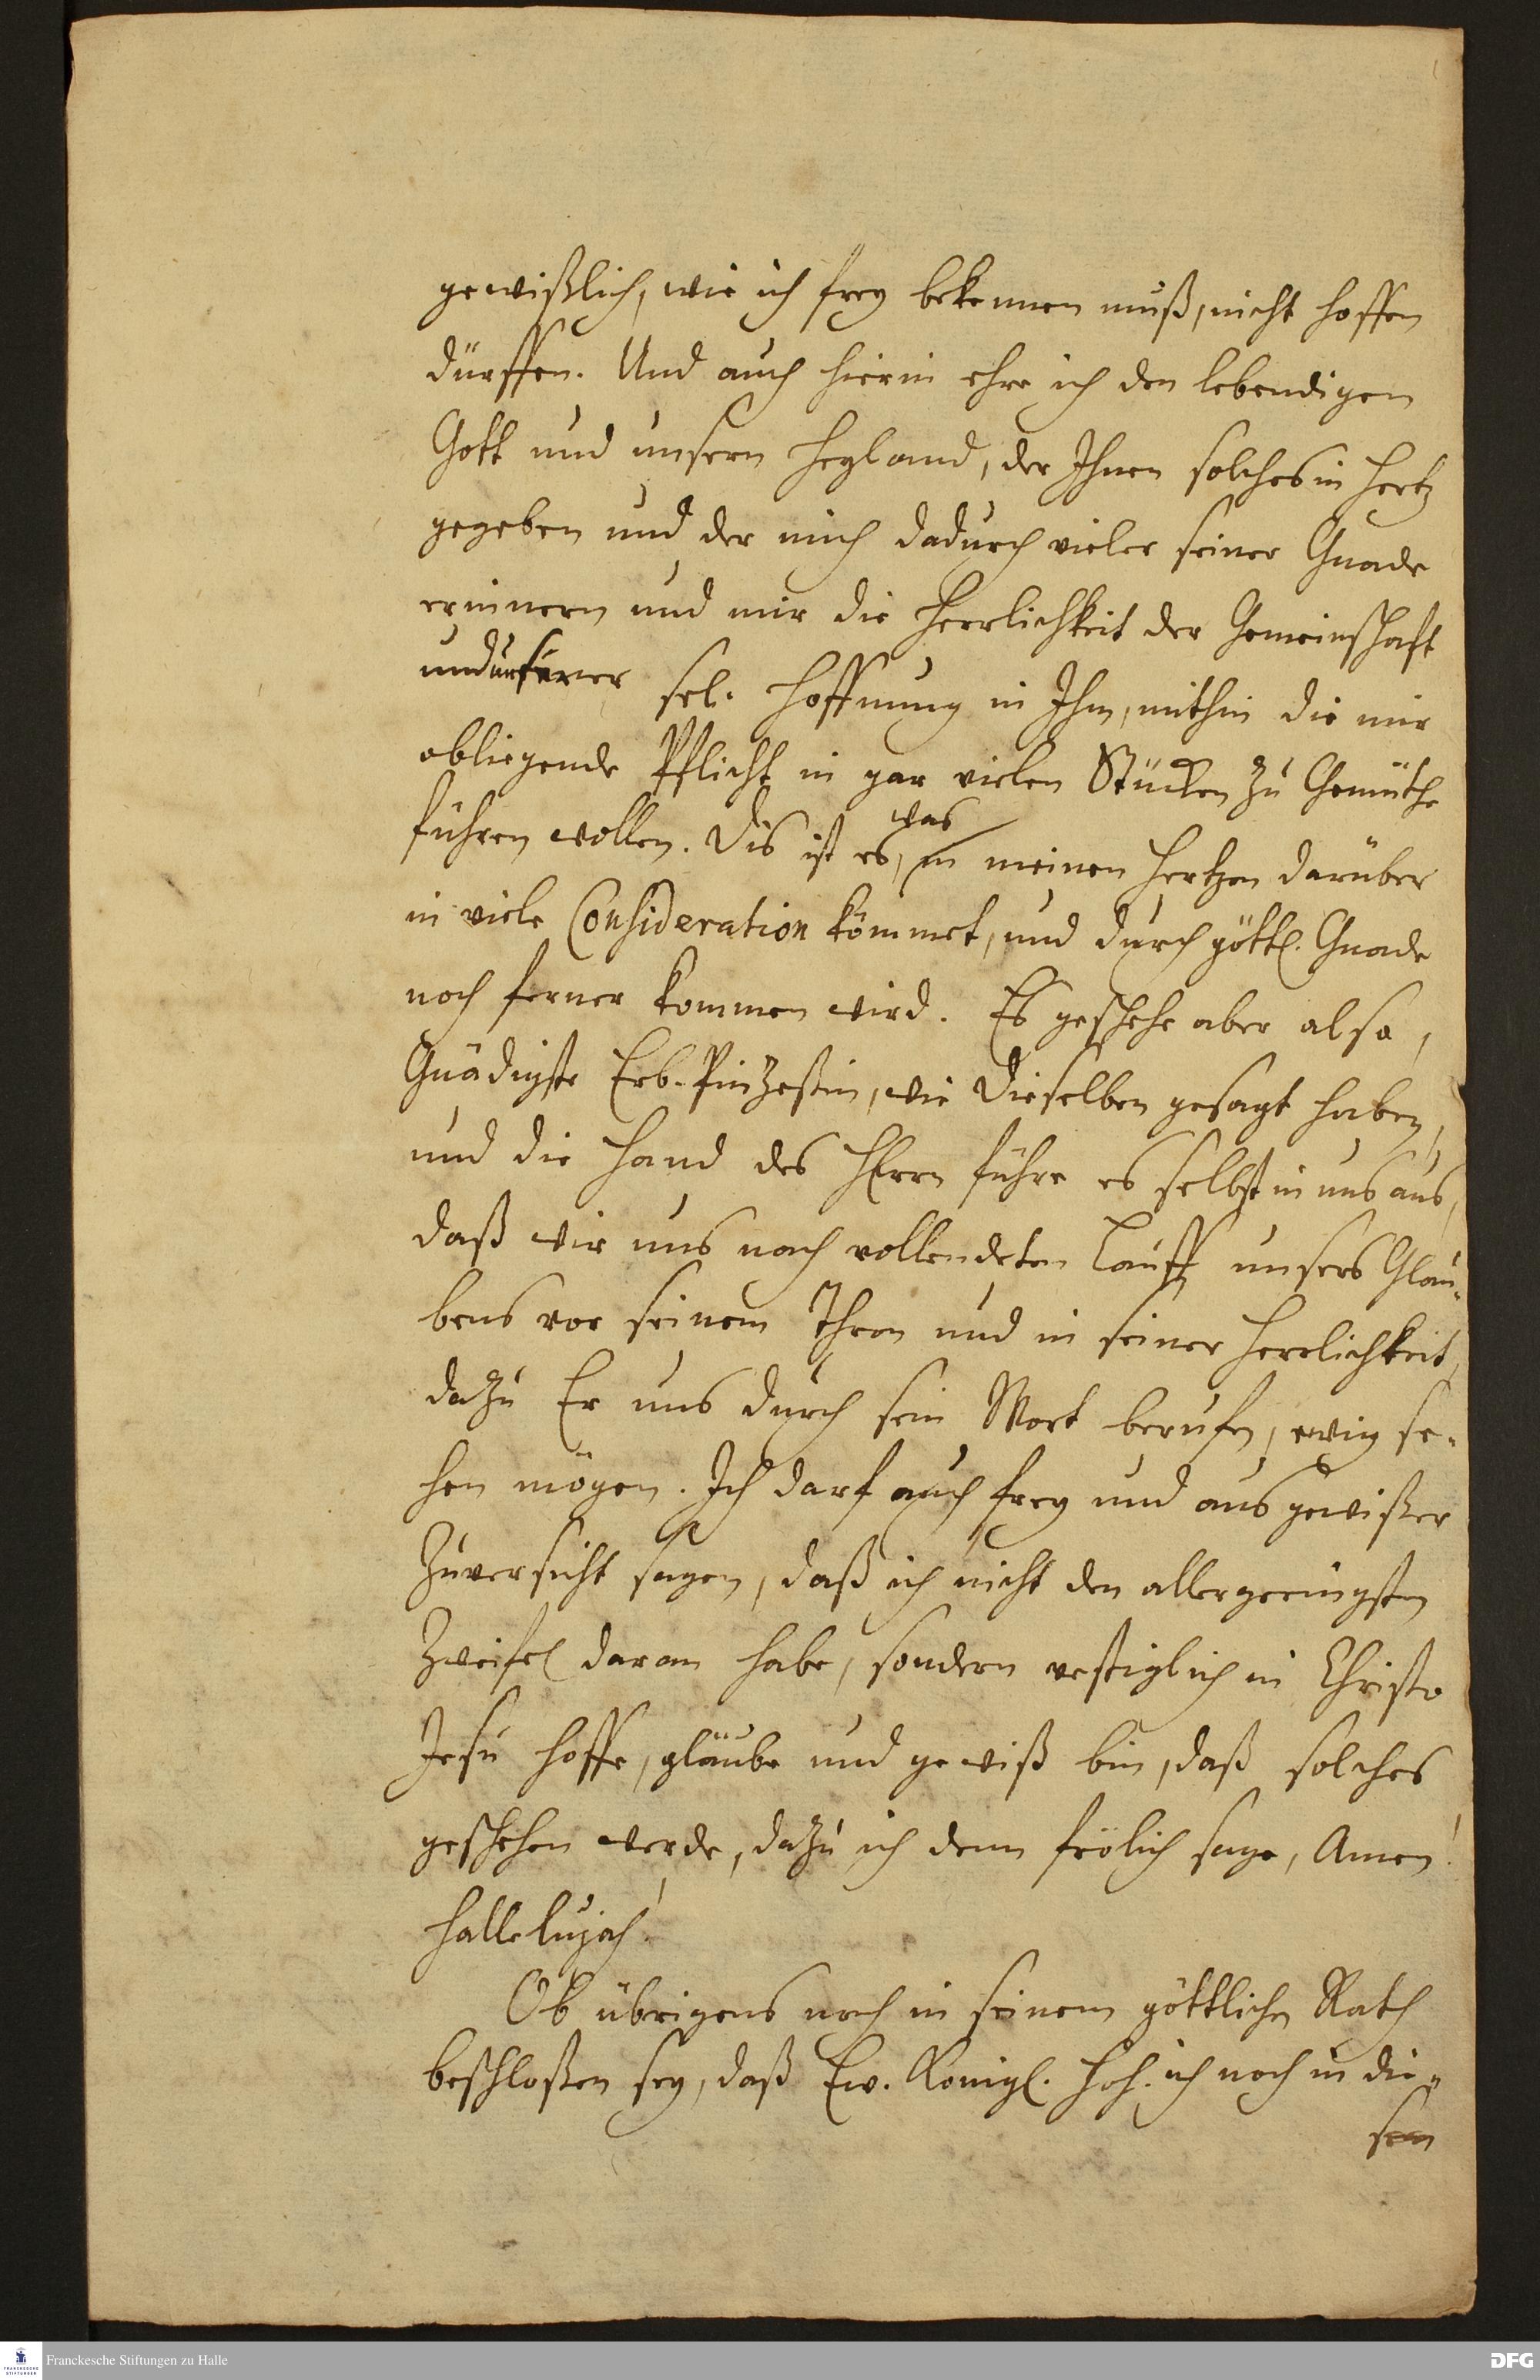 gewißlich, wie ich frey bekennen muß, nicht hoffen
dürffen. Und auch hierin ehre ich den lebendigen
Gott und unsern Heyland, der Ihnen solches in Hertz
gegeben und der mich dadurch vieler seiner Gnade
erinnern und mir die Herrlichkeit der Gemeinschaft
und unserer sel. Hoffnung in Ihm, mithin die mir
obliegende Pflicht in gar vielen Stücken zu Gemüthe
führen wollen. Dis ist es, was in meinen Hertzen darüber
in viele Consideration kömmet, und durch göttl. Gnade
noch ferner kommen wird. Es geschehe aber also,
Gnädigste Erb-Pinzeßin, wie Dieselben gesagt haben,
und die Hand des HErrn führe es selbst in uns aus,
daß wir uns nach vollendeten Lauff unsers Glau-
bens vor seinem Thron und in seiner Herrlichkeit,
dazu Er uns durch sein Wort berufen, ewig se-
hen mögen. Ich darf auch frey und aus gewißer
Zuversicht sagen, daß ich nicht den allergeringsten
Zweifel daran habe, sondern vestiglich in Christo
Jesu hoffe, gläube und gewiß bin, daß solches
geschehen werde, dazu ich denn frölich sage, Amen!
Hallelujah!
Ob übrigens noch in seinem göttlichen Rath
beschloßen sey, daß Ew. Königl. Hoh. ich noch in die-
sem
Franckesche Stiftungen zu Halle
DFG